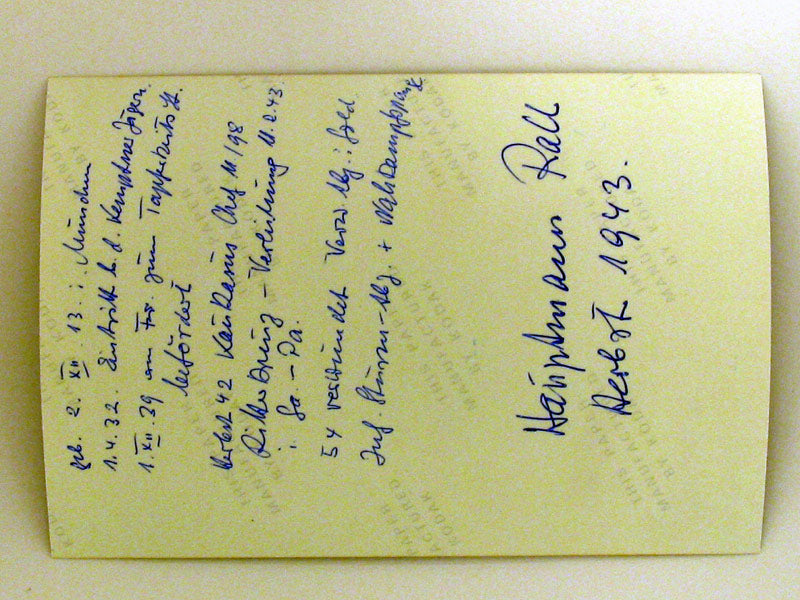 geb. 2. XII. 13. i. München
1.4.32. Eintritt b. d. Kemptener Jägern.
1. XII. 39 am zum Tapferkeits
befördert
Herbst 42 Kaukasus Chef 11/98
Ritterkreuz - Verleihung 11.2.43.
i. Sa. - Pa.
5x verwundet Verw. Abz. i. Gold
Inf. Sturm-Abz. + Nahkampfspange
Hauptmann Rall
Herbst 1943.
THIS PAPER
MANUFACTURED
BY KODAK